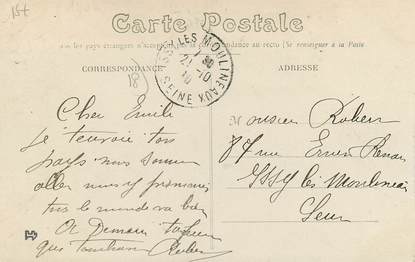 Carte Postale
les pays étrangers n'acceptent pas la correspondance au recto (Se renseigner à la Poste
CORRESPONDANCE
ADRESSE
ISSY LES MOULINEAUX
21-10
10
SEINE
Cher Emile
je t'envoie ton
pays nous sommes
aller nous y promener
tous le monde va bien
Robert
Monsieur Robert
87 rue Ernest Renan
Issy les Moulineaux
Seine